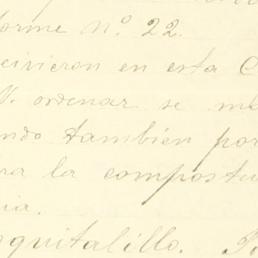 forme n.º 22.
civieron en esta C
V. ordenar se m
ndo también por
ra la compostu
ia.
oquitalillo.